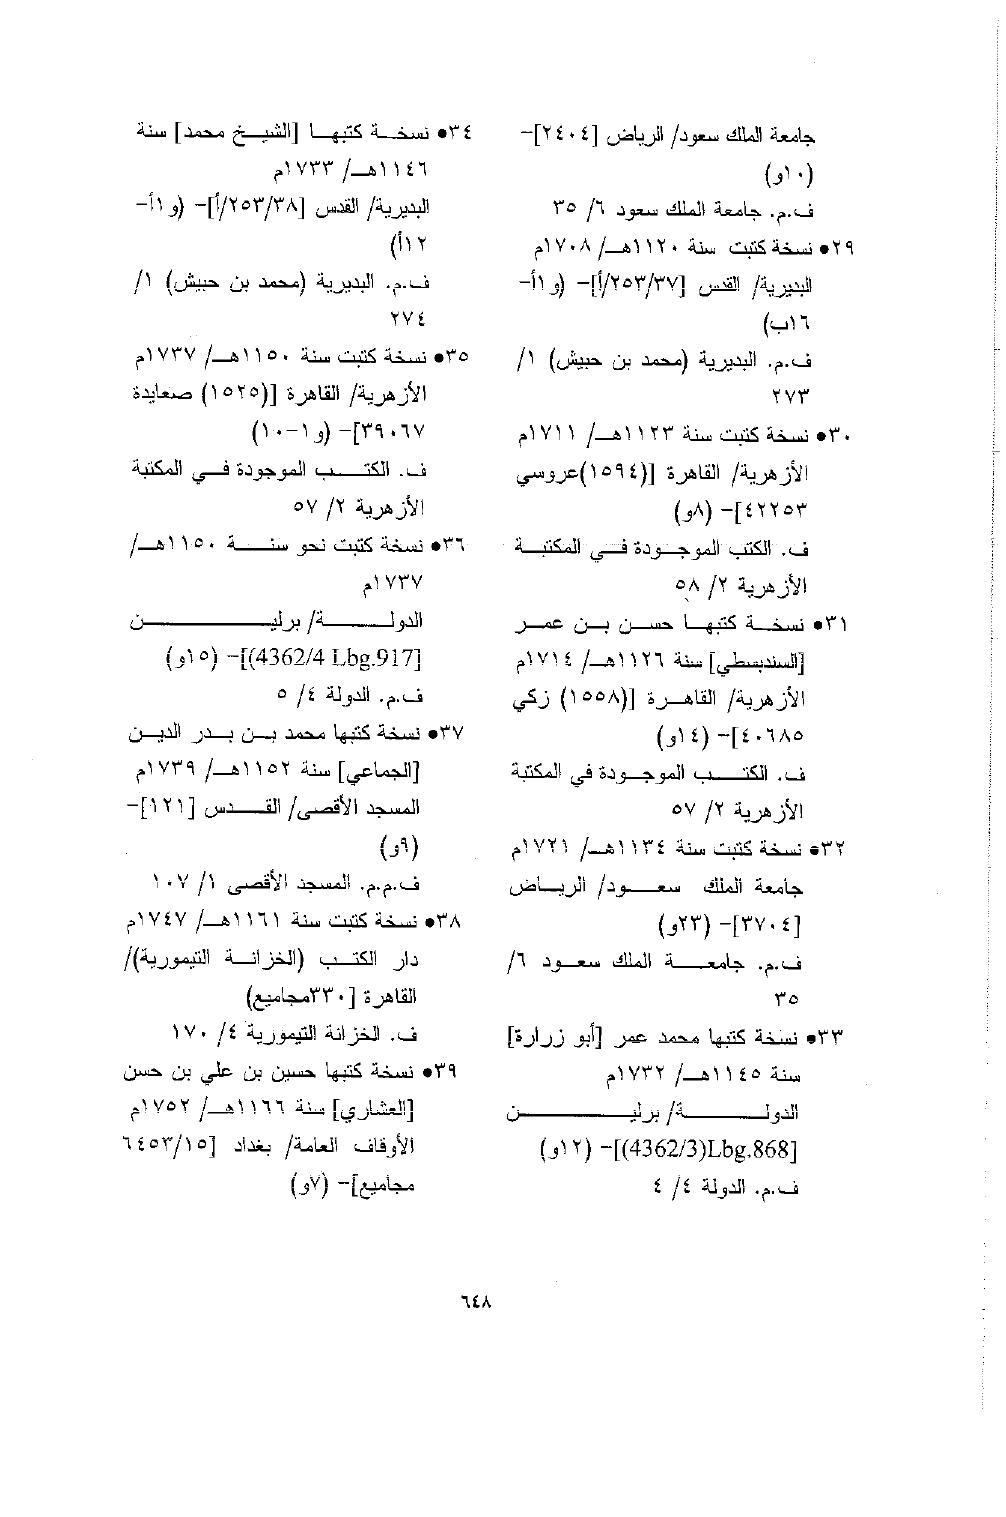 جامعة الملك سعود/ الرياض [٢٤٠٤]-
(١٠و)
ف.م. جامعة الملك سعود ٦/ ٣٥
٢٩• نسخة كتبت سنة ١١٢٠هـ/ ١٧٠٨م
البديرية/ القدس [٢٥٣/٣٧/أ]- (و١أ-
١٦ب)
ف.م. البديرية (محمد بن حبيش) ١/
٢٧٣
٣٠• نسخة كتبت سنة ١١٢٣هـ/ ١٧١١م
الأزهرية/ القاهرة [(١٥٩٤)عروسي
٤٢٢٥٣]- (٨و)
ف. الكتب الموجودة في المكتبة
الأزهرية ٢/ ٥٨
٣١• نسخة كتبها حسن بن عمر
[السنديسطي] سنة ١١٢٦هـ/ ١٧١٤م
الأزهرية/ القاهرة [(١٥٥٨) زكي
٤٠٦٨٥]- (١٤و)
ف. الكتب الموجودة في المكتبة
الأزهرية ٢/ ٥٧
٣٢• نسخة كتبت سنة ١١٣٤هـ/ ١٧٢١م
جامعة الملك سعود/ الرياض
[٣٧٠٤]- (٢٣و)
ف.م. جامعة الملك سعود ٦/
٣٥
٣٣• نسخة كتبها محمد عمر [أبو زرارة]
سنة ١١٤٥هـ/ ١٧٣٢م
الدولة/ برلين
[4362/3)Lbg.868)]- (١٢و)
ف.م. الدولة ٤/ ٤
٣٤• نسخة كتبها [الشيخ محمد] سنة
١١٤٦هـ/ ١٧٣٣م
البديرية/ القدس [٢٥٣/٣٨/أ]- (و١أ-
١٢أ)
ف.م. البديرية (محمد بن حبيش) ١/
٢٧٤
٣٥• نسخة كتبت سنة ١١٥٠هـ/ ١٧٣٧م
الأزهرية/ القاهرة [(١٥٢٥) صعايدة
٣٩٠٦٧]- (و١-١٠)
ف. الكتب الموجودة في المكتبة
الأزهرية ٢/ ٥٧
٣٦• نسخة كتبت نحو سنة ١١٥٠هـ/
١٧٣٧م
الدولة/ برلين
[4362/4 Lbg.917)]- (١٥و)
ف.م. الدولة ٤/ ٥
٣٧• نسخة كتبها محمد بن بدر الدين
[الجماعي] سنة ١١٥٢هـ/ ١٧٣٩م
المسجد الأقصى/ القدس [١٢١]-
(٩و)
ف.م.م. المسجد الأقصى ١/ ١٠٧
٣٨• نسخة كتبت سنة ١١٦١هـ/ ١٧٤٧م
دار الكتب (الخزانة التيمورية)/
القاهرة [٣٣٠مجاميع)
ف. الخزانة التيمورية ٤/ ١٧٠
٣٩• نسخة كتبها حسين بن علي بن حسن
[العشاري] سنة ١١٦٦هـ/ ١٧٥٢م
الأوقاف العامة/ بغداد [٦٤٥٣/١٥
مجاميع]- (٧و)
٦٤٨